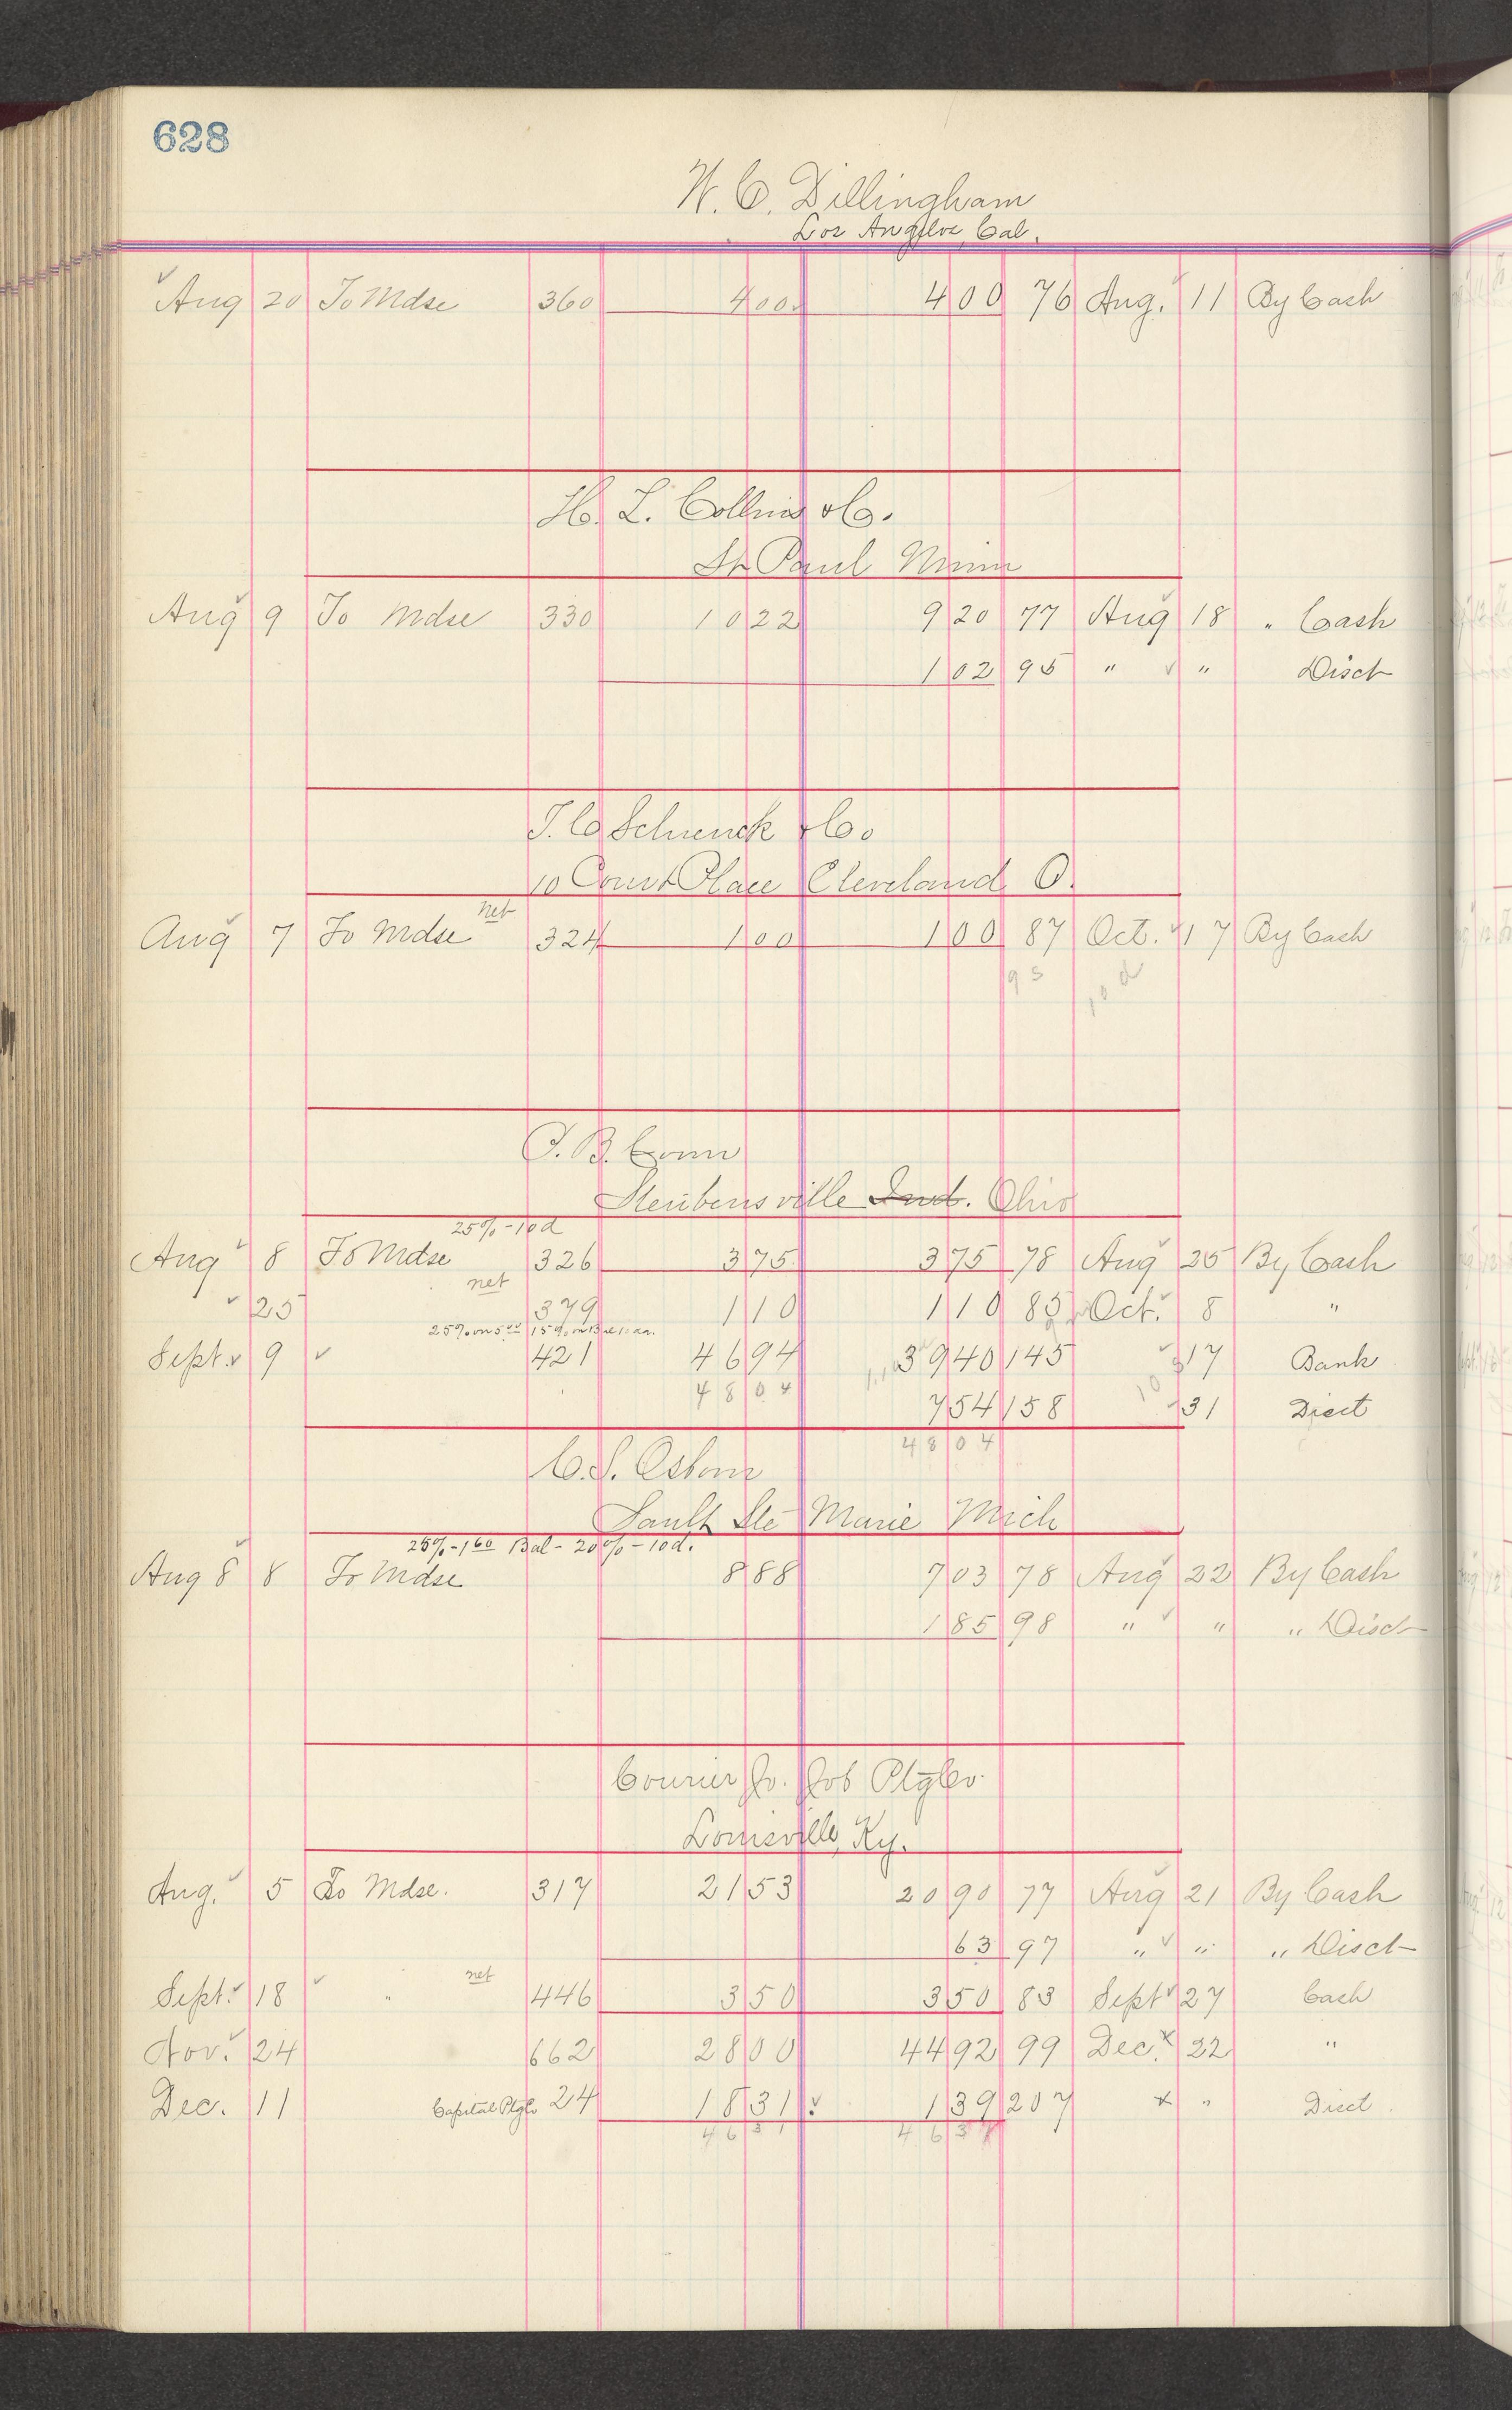 628
W. C. Dillingham
Los Angeles, Cal.
Aug 20 To Mdse 360 400 400 76 Aug. 11 By Cash
H. L. Collins & Co.
St Paul Minn
Aug 9 To Mdse 330 1022 920 77 Aug 18 " Cash
102 95 " " Disct
T. C. Schenck & Co
10 Court Place Cleveland O.
net
Aug 7 To Mdse 324 100 100 87 Oct. 17 By Cash
95 10 d
B. Conn
Steubensville Ind. Ohio
25% - 10 d
Aug 8 To Mdse 326 375 375 78 Aug 25 By Cash
net
25 379 110 110 85 Oct. 8 "
25% on 5 00 15% on Bal 10 da.
Sept. 9 421 4694 3940 145 17 Bank
4804 10
754 158 31 Disct
4804
C. S. Osborn
Sault Ste Marie Mich
25% - 1 60 Bal - 20% - 10 d.
Aug 8 8 To Mdse 888 703 78 Aug 22 By Cash
185 98 " " " Disct
Courier Jo. Job Ptg Co.
Louisville, Ky.
Aug. 5 To Mdse. 317 2153 2090 77 Aug 21 By Cash
63 97 " " " Disct
net
Sept. 18 " 446 350 350 83 Sept 27 Cash
Nov. 24 662 2800 4492 99 Dec. 22 "
Dec. 11 Capital Ptg Co 24 1831 139 207 " Disct
4631 4631